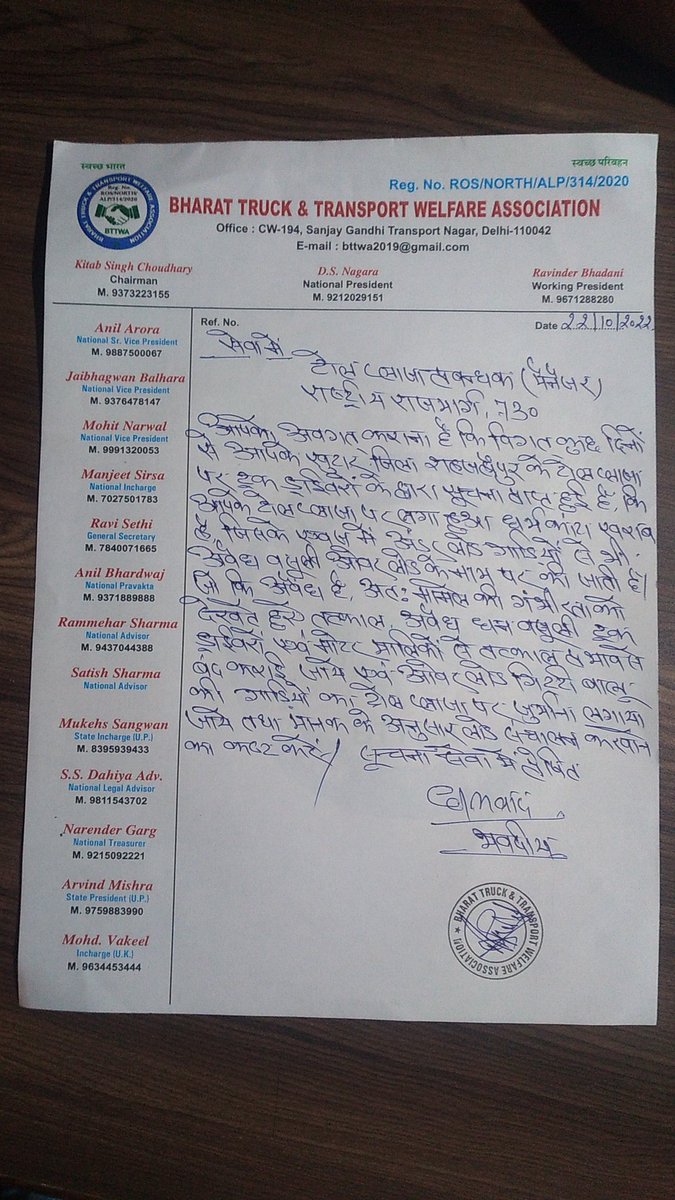 स्वच्छ भारत
स्वच्छ परिवहन
Reg. No. ROS/NORTH/ALP/314/2020
BHARAT TRUCK & TRANSPORT WELFARE ASSOCIATION
Reg. No. ROS/NORTH/ALP/314/2020
BTTWA
BHARAT TRUCK & TRANSPORT WELFARE ASSOCIATION
Office : CW-194, Sanjay Gandhi Transport Nagar, Delhi-110042
E-mail : bttwa2019@gmail.com
Kitab Singh Choudhary
Chairman
M. 9373223155
D.S. Nagara
National President
M. 9212029151
Ravinder Bhadani
Working President
M. 9671288280
Anil Arora
National Sr. Vice President
M. 9887500067
Jaibhagwan Balhara
National Vice President
M. 9376478147
Mohit Narwal
National Vice President
M. 9991320053
Manjeet Sirsa
National Incharge
M. 7027501783
Ravi Sethi
General Secretary
M. 7840071665
Anil Bhardwaj
National Pravakta
M. 9371889888
Rammehar Sharma
National Advisor
M. 9437044388
Satish Sharma
National Advisor
Mukehs Sangwan
State Incharge (U.P.)
M. 8395939433
S.S. Dahiya Adv.
National Legal Advisor
M. 9811543702
Narender Garg
National Treasurer
M. 9215092221
Arvind Mishra
State President (U.P.)
M. 9759883990
Mohd. Vakeel
Incharge (U.K.)
M. 9634453444
Ref. No.
Date 22/10/2022
सेवा में
टोल प्लाजा प्रबन्धक (मैनेजर)
राष्ट्रीय राजमार्ग, 730
आपको अवगत कराना है कि विगत कुछ दिनों
से आपके खुटार जिला शाहजहाँपुर के टोल प्लाजा
पर ट्रक ड्राइवरों के द्वारा सूचना प्राप्त हुई है कि
आपके टोल प्लाजा पर लगा हुआ धर्म कांटा खराब
है जिसके एवज में अंडर लोड गाडियों से भी
अवैध वसूली ओवर लोड के नाम पर की जाती है।
जो कि अवैध है, अतः मामले की गंभीरता को
देखते हुये तत्काल, अवैध धन वसूली ट्रक
ड्राइवरों एवं मोटर मालिकों से तत्काल प्रभाव से
बंद कराई जाये एवं ओवर लोड गिट्टी बालू
की गाडियों का टोल प्लाजा पर जुर्माना लगाया
जाये तथा मानक के अनुसार लोड संचालन करवाने
का कष्ट करें। सूचना सेवा में प्रेषित
धन्यवाद
भवदीय
BHARAT TRUCK & TRANSPORT WELFARE ASSOCIATION